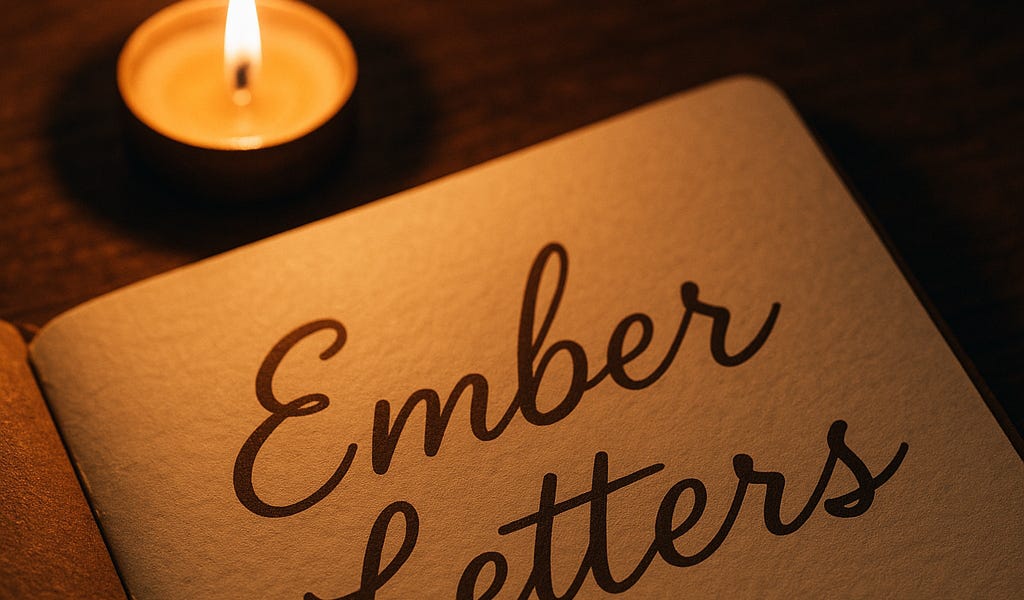 Ember
Letters